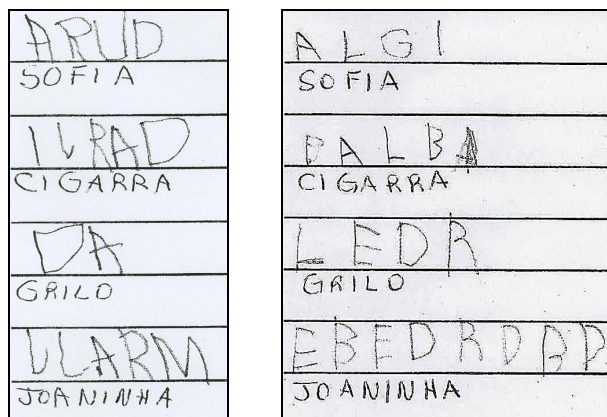 ARUD
SOFIA
ILRAD
CIGARRA
DA
GRILO
LLARM
JOANINHA
ALGI
SOFIA
PALBA
CIGARRA
LEDR
GRILO
EBEDRDBD
JOANINHA